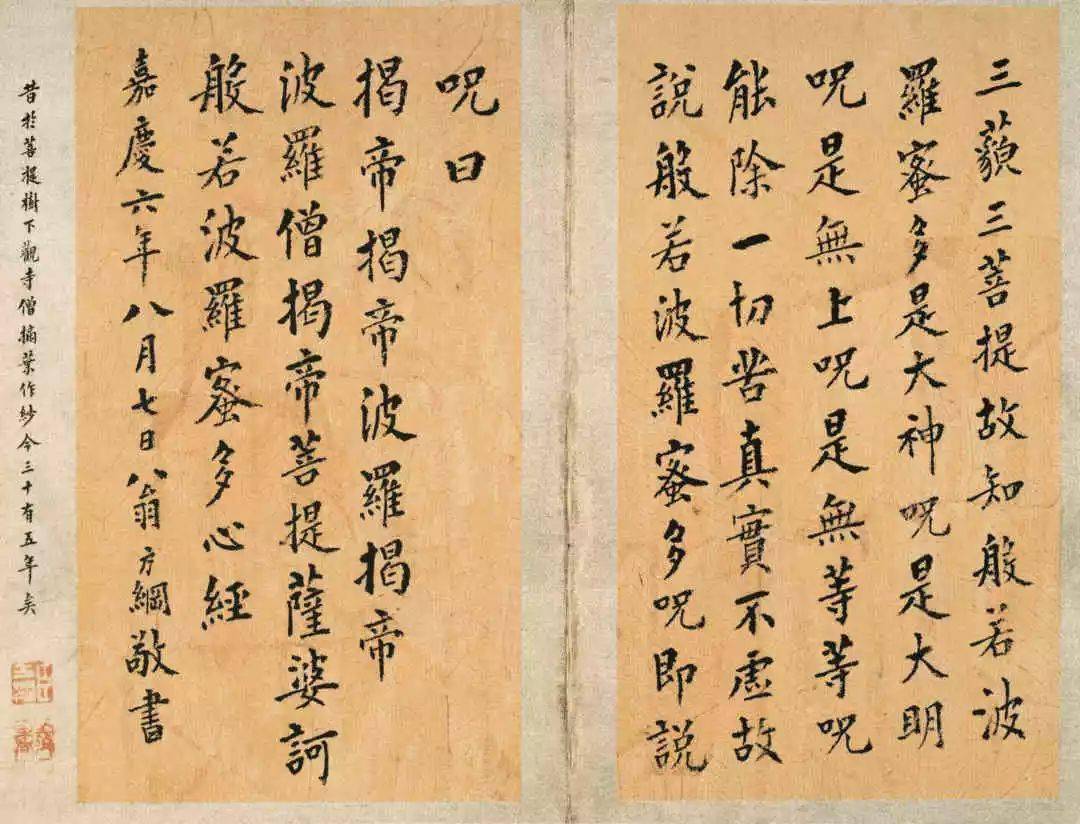 三藐三菩提故知般若波
羅蜜多是大神呪是大明
呪是無上呪是無等等呪
能除一切苦真實不虛故
說般若波羅蜜多呪即說
呪曰
揭帝揭帝波羅揭帝
波羅僧揭帝菩提薩婆訶
般若波羅蜜多心經
嘉慶六年八月七日翁方綱敬書
昔於菩提樹下觀寺僧摘葉作紗今三十有五年矣